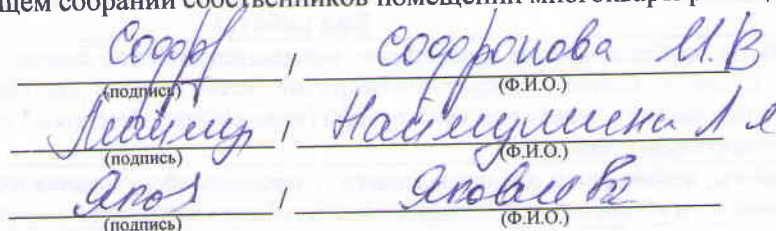 щем собрании собственников помещений многокварти
Софр , Софронова М.В
(подпись) (Ф.И.О.)
, Наймушина Л
(подпись) (Ф.И.О.)
Яков , Яковлева
(подпись) (Ф.И.О.)